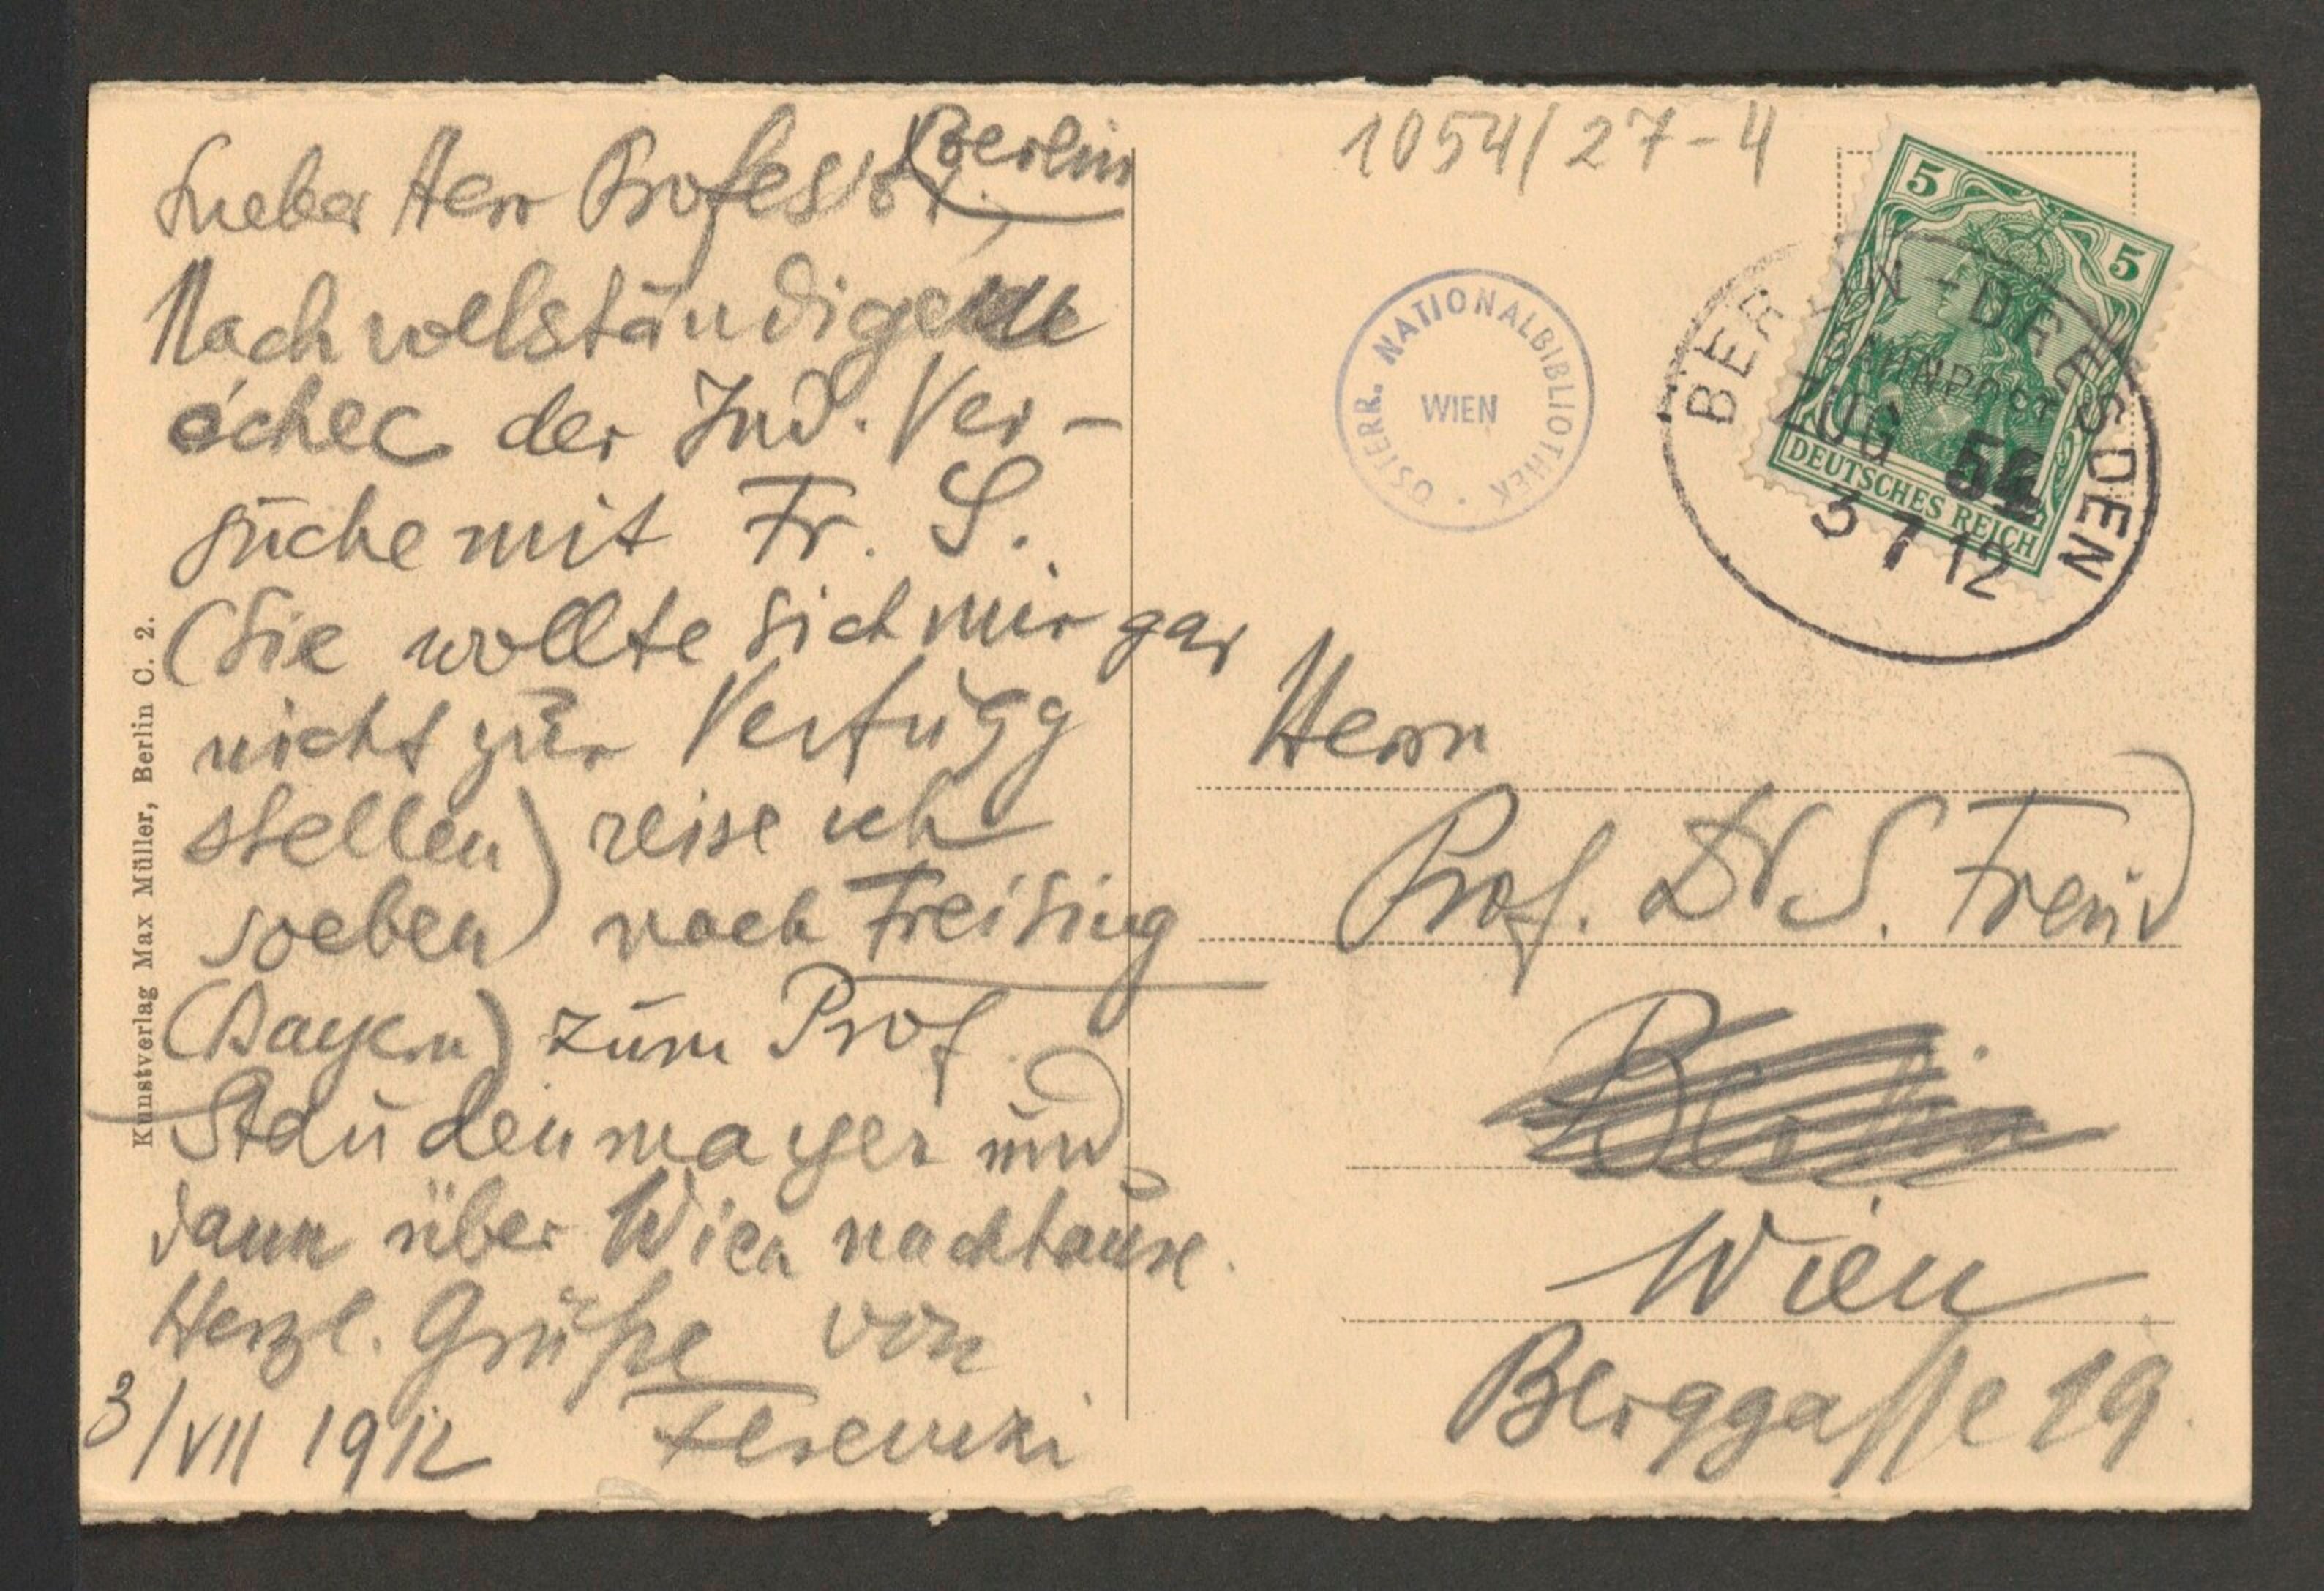 Berlin
Lieber Herr Professor,
Nach vollständigem
échec der Ind. Ver-
suche mit Fr. S.
(Sie wollte sich mir gar
nicht zur Verfügg
stellen) reise ich
soeben nach Freising
(Bayern) zum Prof.
Staudenmayer und
dann über Wien nachhause.
Herzl. Grüße von
Ferenczi
3/VII 1912
Kunstverlag Max Müller, Berlin C. 2.
1054/27-4
ÖSTERR. NATIONALBIBLIOTHEK
WIEN
5 5
DEUTSCHES REICH
BERLIN-DRESDEN
BAHNPOST
ZUG
3 7 12
Herrn
Prof. Dr S. Freud
Berlin
Wien
Berggasse 19.